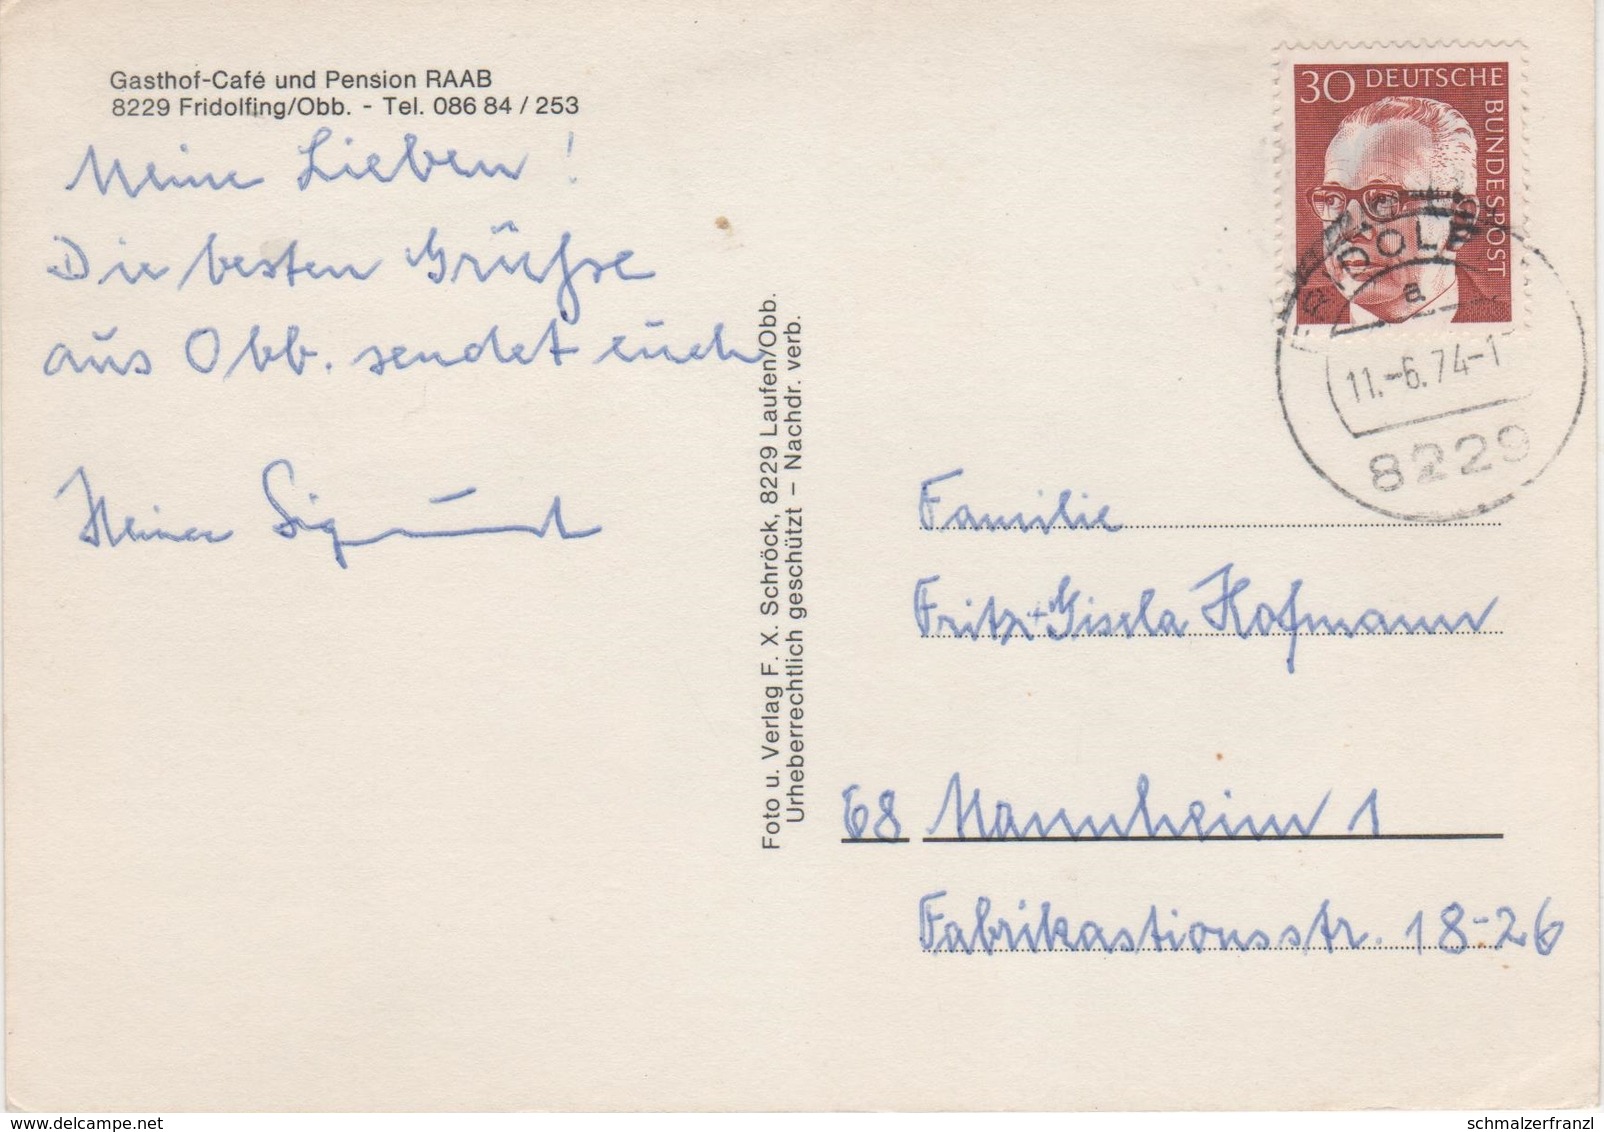 Gasthof-Café und Pension RAAB
8229 Fridolfing/Obb. - Tel. 086 84 / 253
Meine Lieben!
Die besten Grüße
aus Obb. sendet euch
Sigmund
Foto u. Verlag F. X. Schröck, 8229 Laufen/Obb.
Urheberrechtlich geschützt – Nachdr. verb.
30 DEUTSCHE
BUNDESPOST
a
11.-6.74-1
8229
Familie
Fritz + Gisela Hofmann
68 Mannheim 1
Fabrikastionsstr. 18-26
schmalzerfranzl